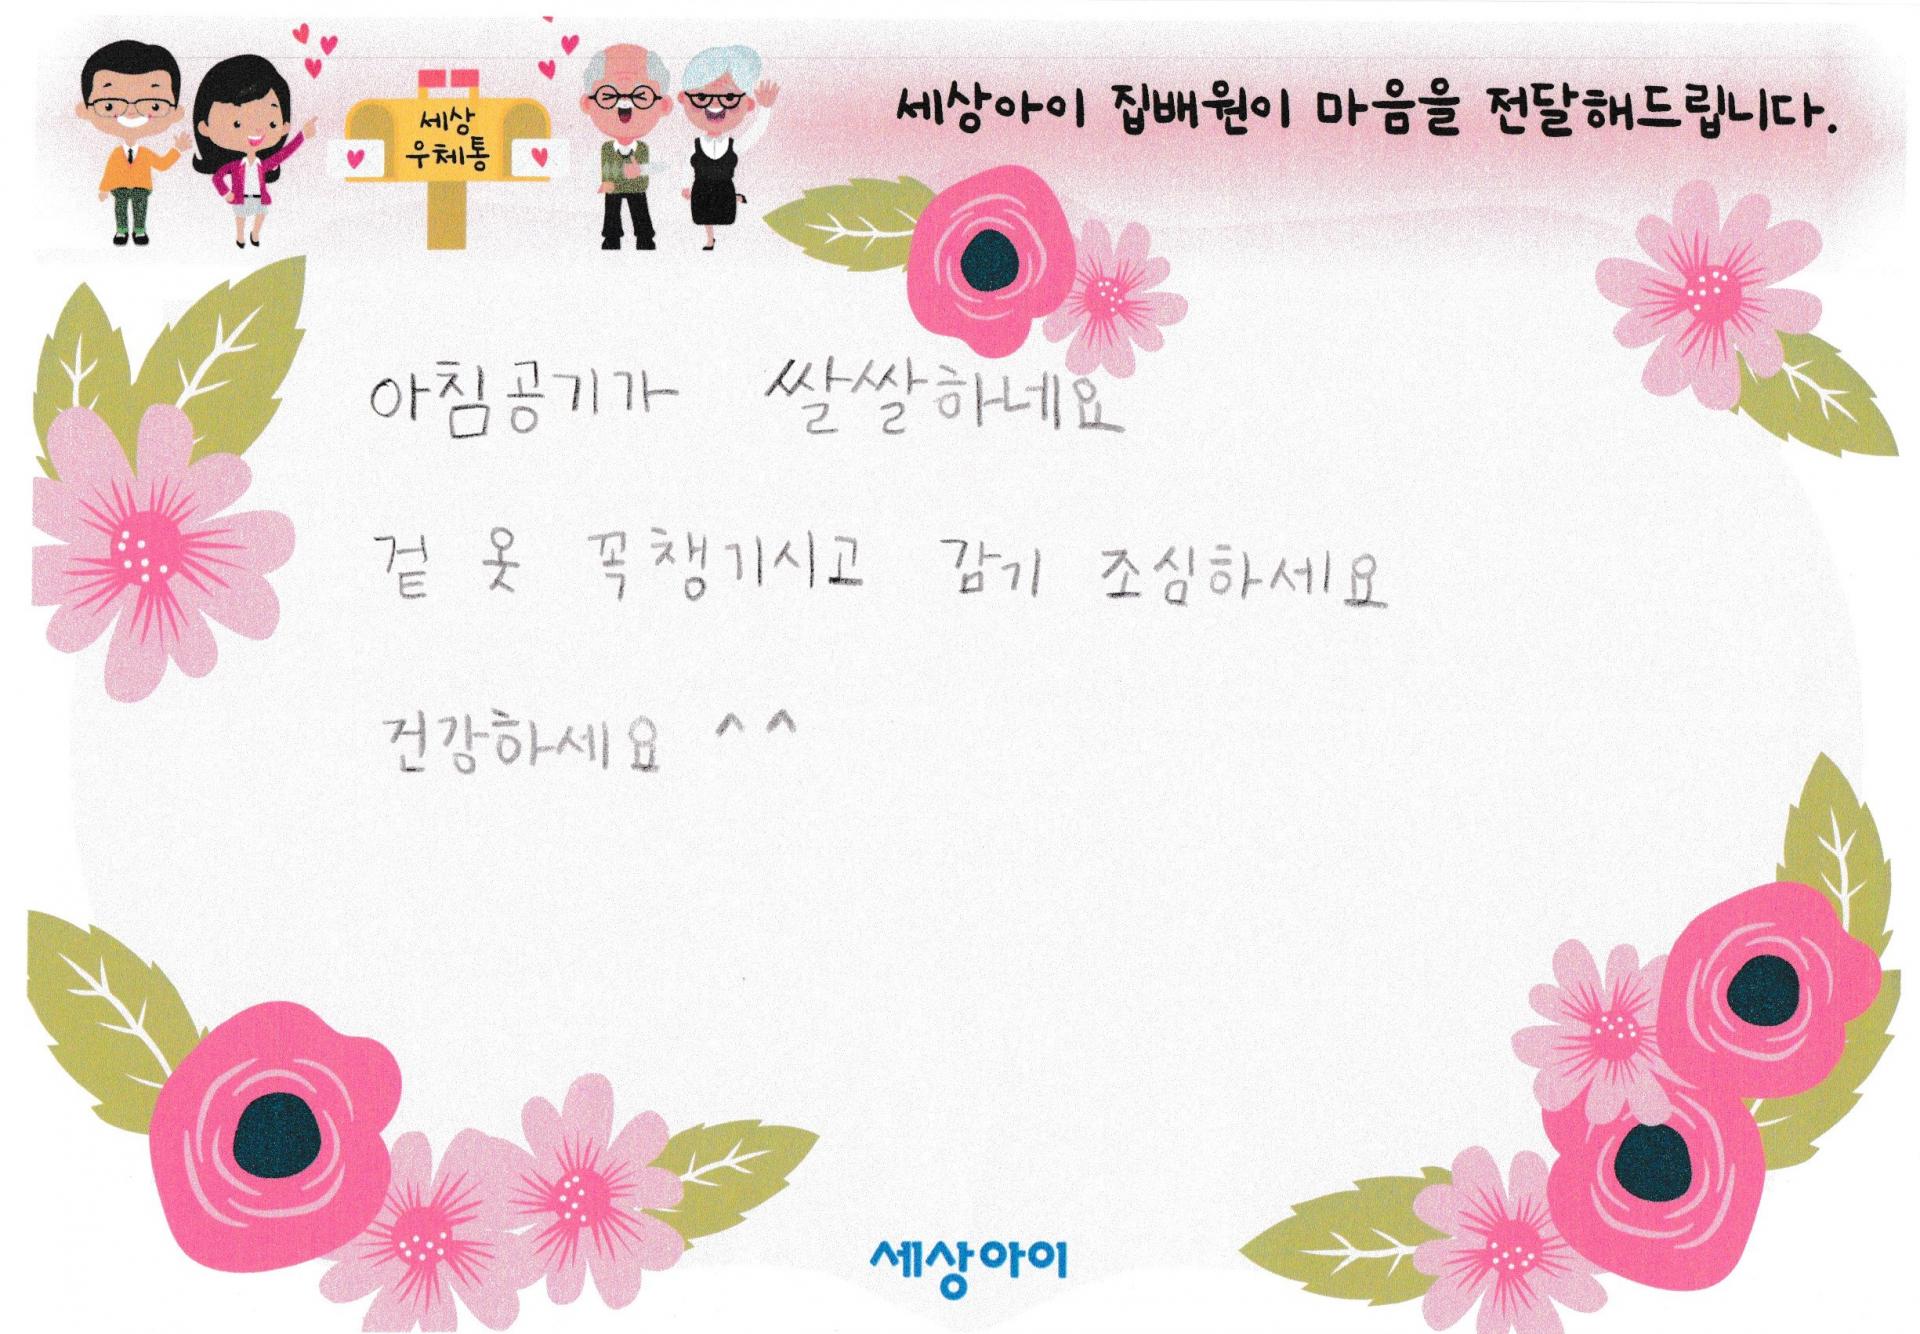 세상아이 집배원이 마음을 전달해드립니다.
세상
우체통
아침공기가 쌀쌀하네요
겉 옷 꼭챙기시고 감기 조심하세요
건강하세요 ^^
세상아이